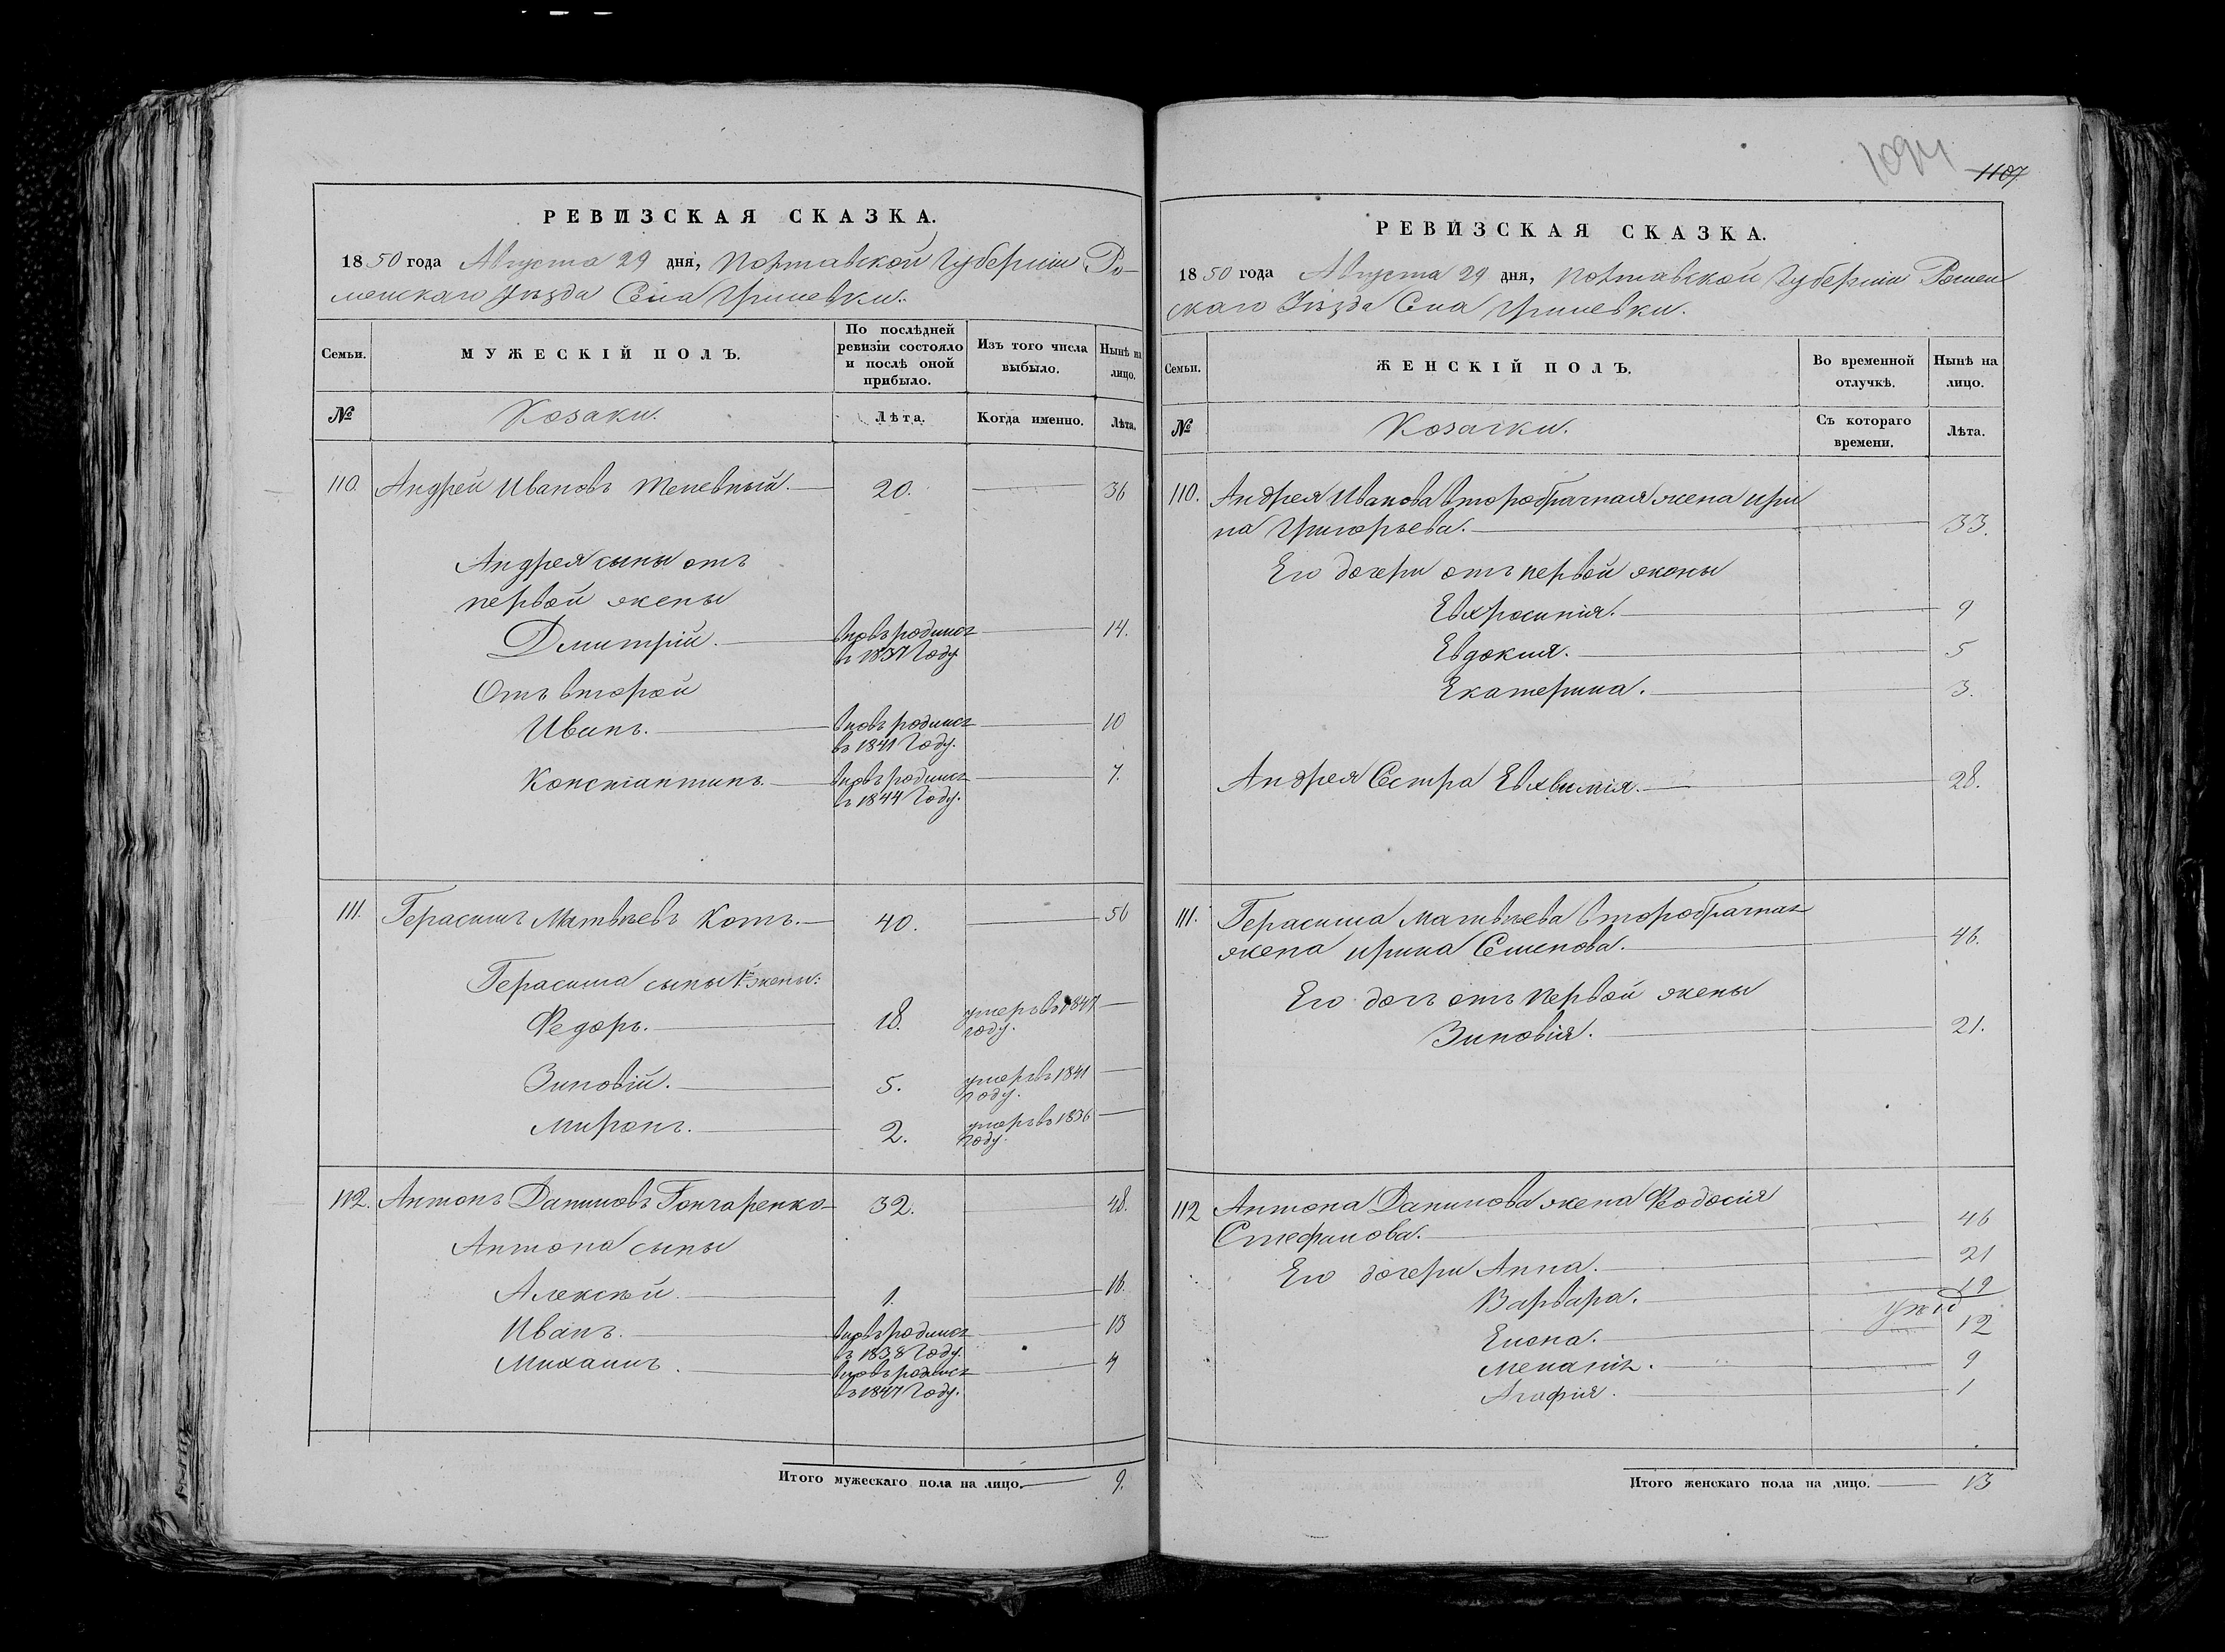 РЕВИЗСКАЯ СКАЗКА.
1850 года Августа 29 дня, Полтавской Губерніи Ро-
менскаго Уѣзда Села Гриневки.
Семьи.
МУЖЕСКІЙ ПОЛЪ.
По послѣдней
ревизіи состояло
и послѣ оной
прибыло.
Изъ того числа
выбыло.
Нынѣ на
лицо.
№
Козаки.
Лѣта.
Когда именно.
Лѣта.
110. Андрей Ивановъ 20. 36
Андрея сыны отъ
первой жены
Дмитрій. вновь родился 14.
въ 1837 Году
Отъ второй
Иванъ. вновь родился 10
въ 1841 Году.
Константинъ. вновь родился 7.
въ 1844 Году.
111. Герасимъ Матвѣевъ Котъ. 40. 56
Герасима сыны 1й жены:
Федоръ. 18. умеръ въ 1847
году.
Зиновій. 5. умеръ въ 1841
году.
Миронъ. 2. умеръ въ 1836
году.
112. Антонъ Даниловъ Гончаренко 32. 48.
Антона сыны
Алексѣй. 1. 16.
Иванъ. вновь родился 13
въ 1838 Году.
Михаилъ. вновь родился 4
въ 1847 Году.
Итого мужескаго пола на лицо. 9.
1094
1107
РЕВИЗСКАЯ СКАЗКА.
1850 года Августа 29 дня, Полтавской Губерніи Ромен
скаго Уѣзда Села Гриневки.
Семьи.
ЖЕНСКІЙ ПОЛЪ.
Во временной
отлучкѣ.
Нынѣ на
лицо.
№
Козачки.
Съ котораго
времени.
Лѣта.
110. Андрея Иванова второбрачная жена Ири
на Григорьева. 33.
Его дочери отъ первой жены
Евхросинія. 9
Евдокия. 5
Екатерина. 3.
Андрея Сестра Евхвимія. 28.
111. Герасима Матвѣева второбрачная
жена Ирина Семенова. 46.
Его дочь отъ первой жены
Зиновія. 21.
112 Антона Данилова жена Феодосия
Стефанова. 46
Его дочери Анна. 21
Варвара. 19
Елена. 12
Меланія. 9
Агафия. 1
Итого женскаго пола на лицо. 13